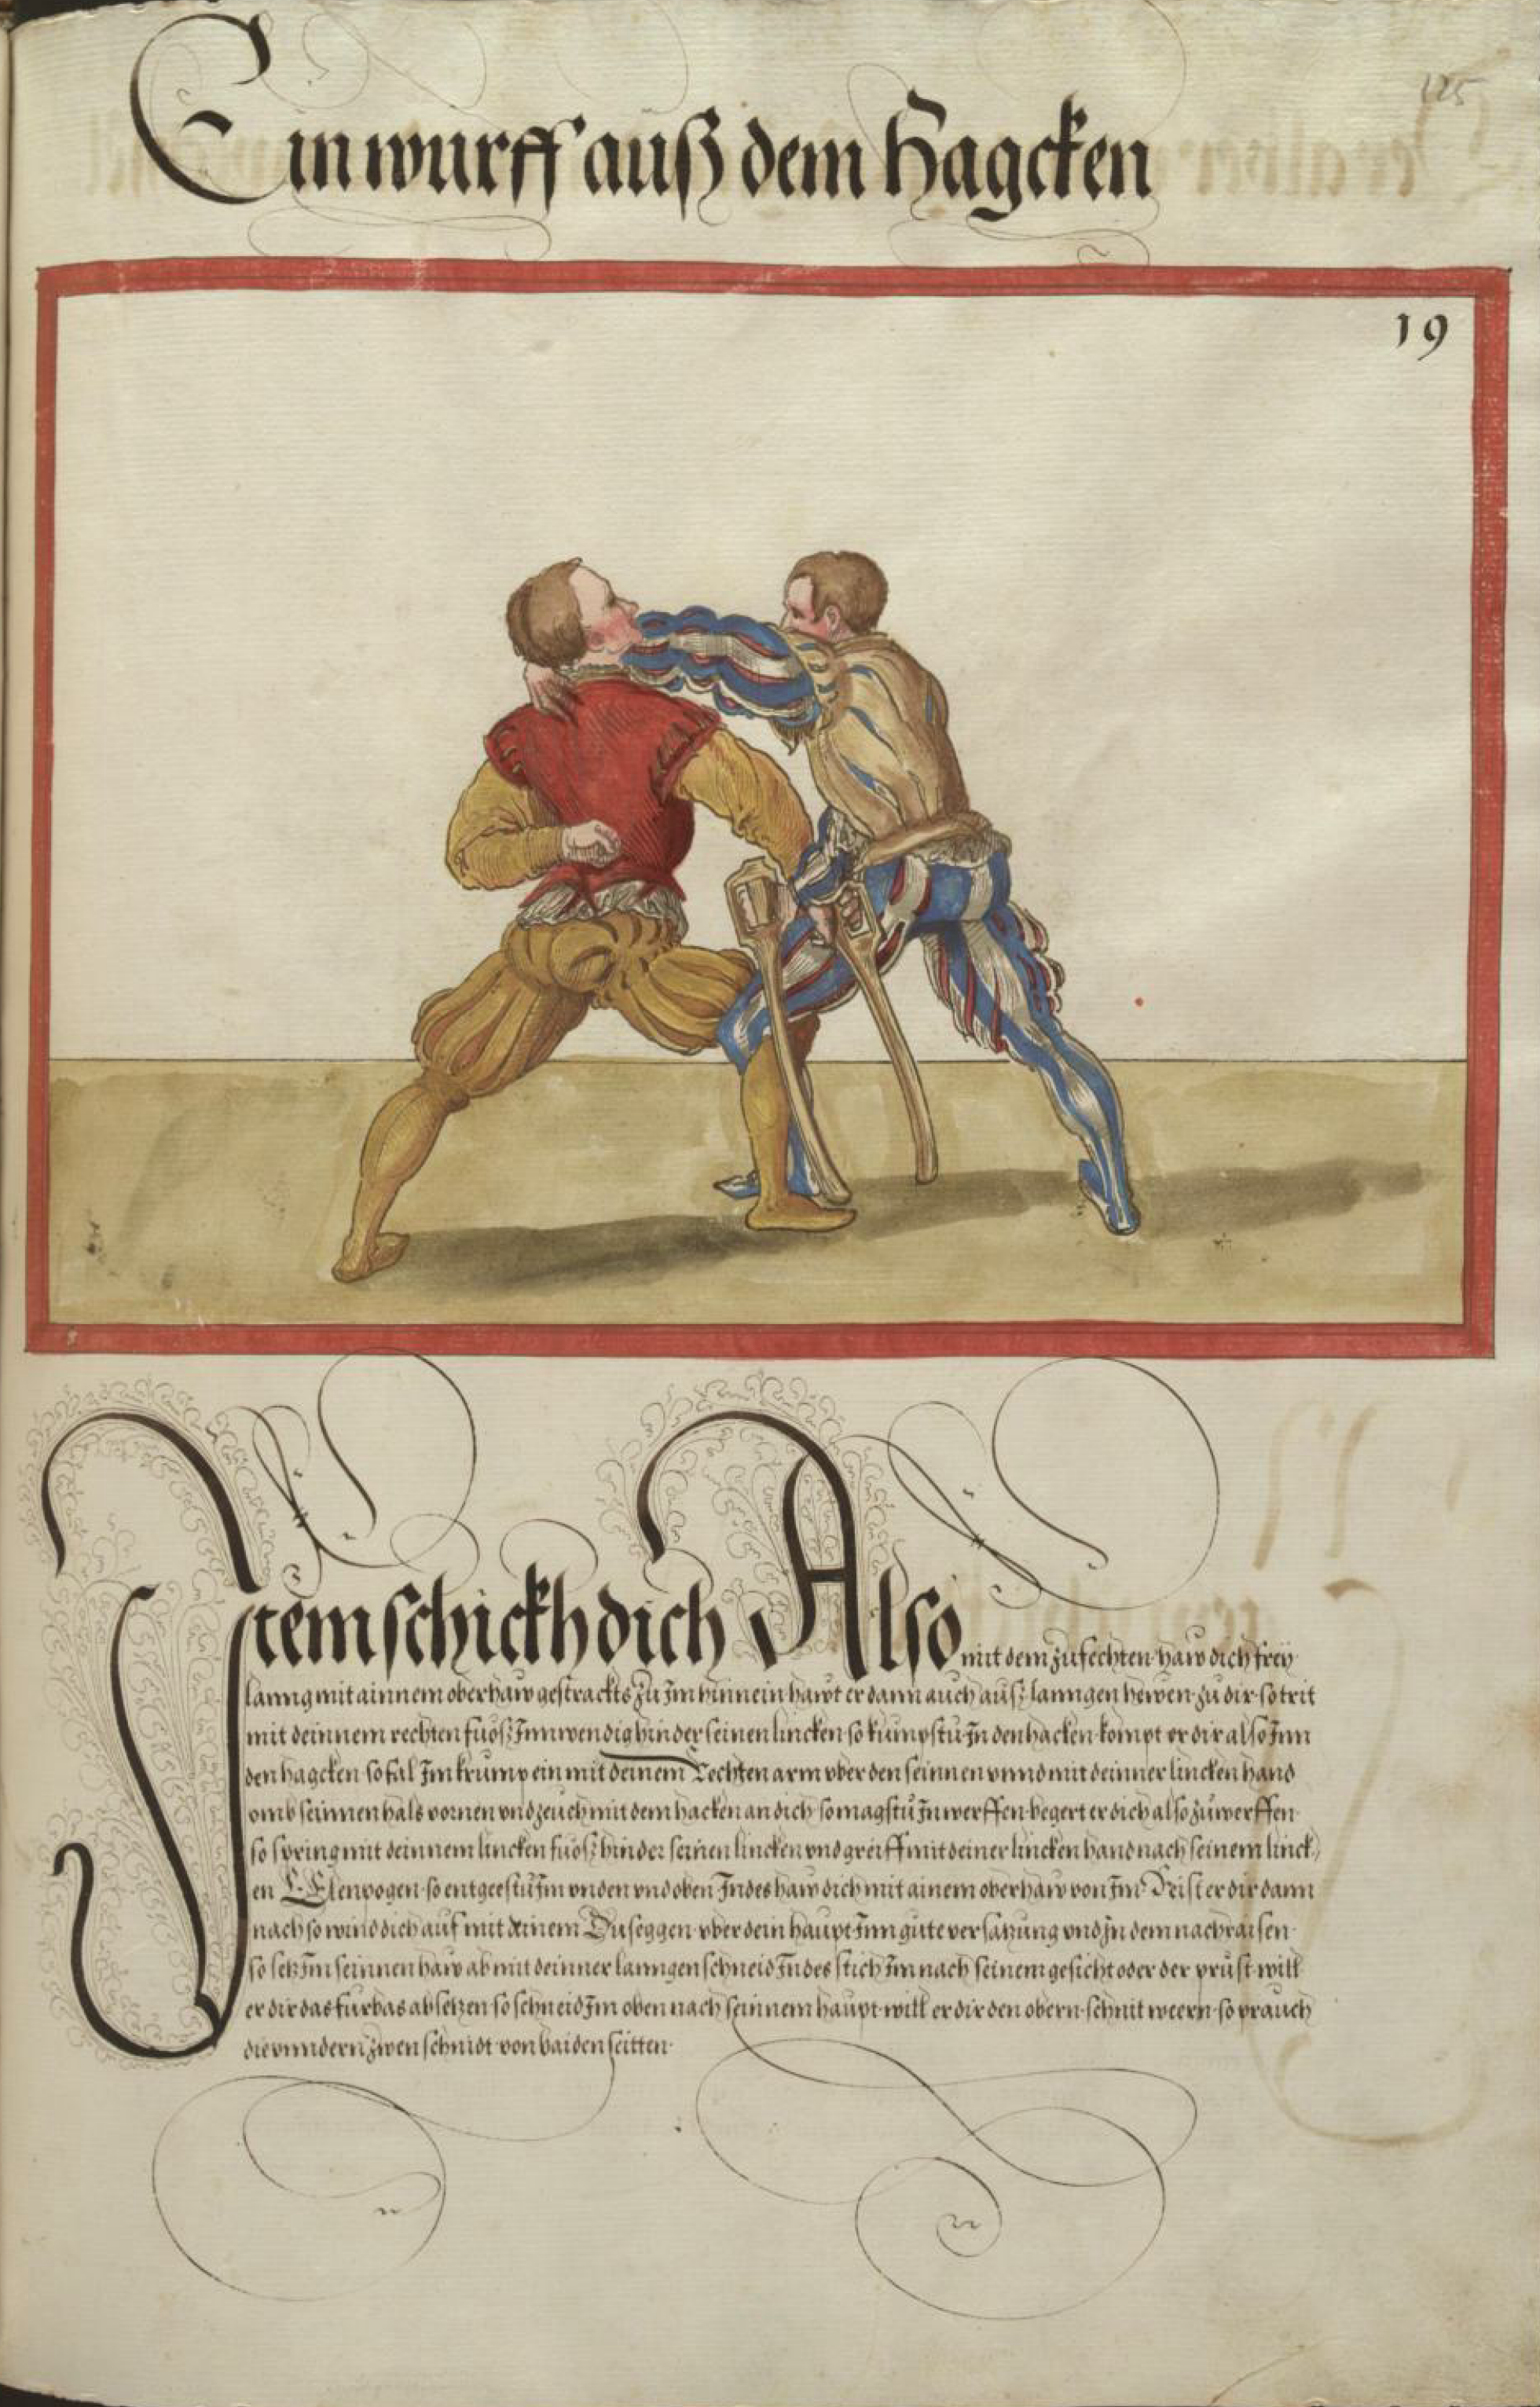 125
Ein wurff auß dem Hagcken
19
Item schickh dich Also mit dem zufechten haw dich freÿ
lanng mit ainnem oberhaw gestrackts zu Im hinnein hawt er dann auch auß lanngen hewen zu dir so trit
mit deinnem rechten fuoß Innwendig hinder seinen lincken so kumpstu In den hacken kompt er dir also Inn
den hagcken so fal Im krump ein mit deinem Rechten arm vber den seinnen vnnd mit deinner lincken hand
vmb seinnen hals vornen vnd zeuch mit dem hacken an dich so magstu In werffen begert er dich also zuwerffen
so spring mit deinnem lincken fuoß hinder seinen lincken vnd greiff mit deiner lincken hand nach seinem linck
en Elenpogen so entgeestu Im vnden vnd oben Indes haw dich mit ainem oberhaw von Im Reist er dir dann
nach so wind dich auf mit deinem Duseggen vber dein haupt Inn gute versatzung vnd In dem nachraisen
so setz Im seinnen haw ab mit deinner lanngen schneid Indes stich Im nach seinem gesicht oder der prust will
er dir das furbas absetzen so schneid Im oben nach seinnem haupt will er dir den obern schnit weern so prauch
die vnndern zwen schnidt von baiden seitten